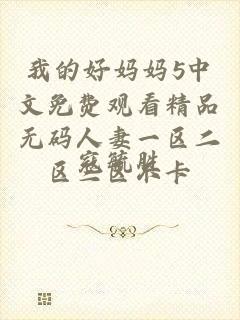 我的好妈妈5中
文免费观看精品
无码人妻一区二
区三区不卡
寇毓胜